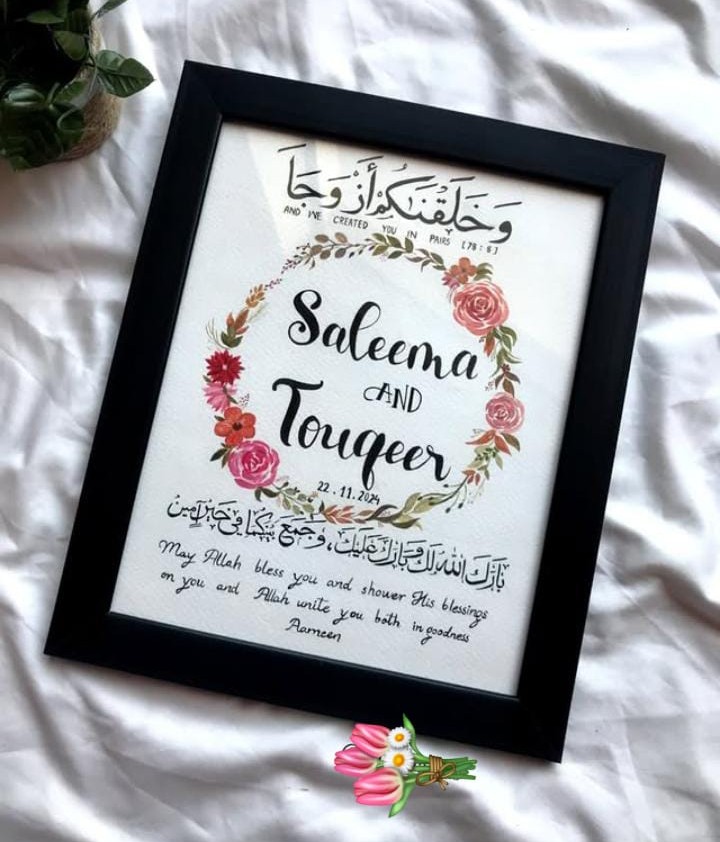 وَخَلَقْنَكُمْ أَزْوَجَاً
AND WE CREATED YOU IN PAIRS [78:6]
Saleema
AND
Touqeer
22.11.2024
بَارَكَ اللهُ لَكَ وَبَارَكَ عَلَيْكَ، وَجَمَعَ بَيْنَكُمَا فِي خَيْرٍ آمِين
May Allah bless you and shower His blessings
on you and Allah unite you both in goodness
Aameen